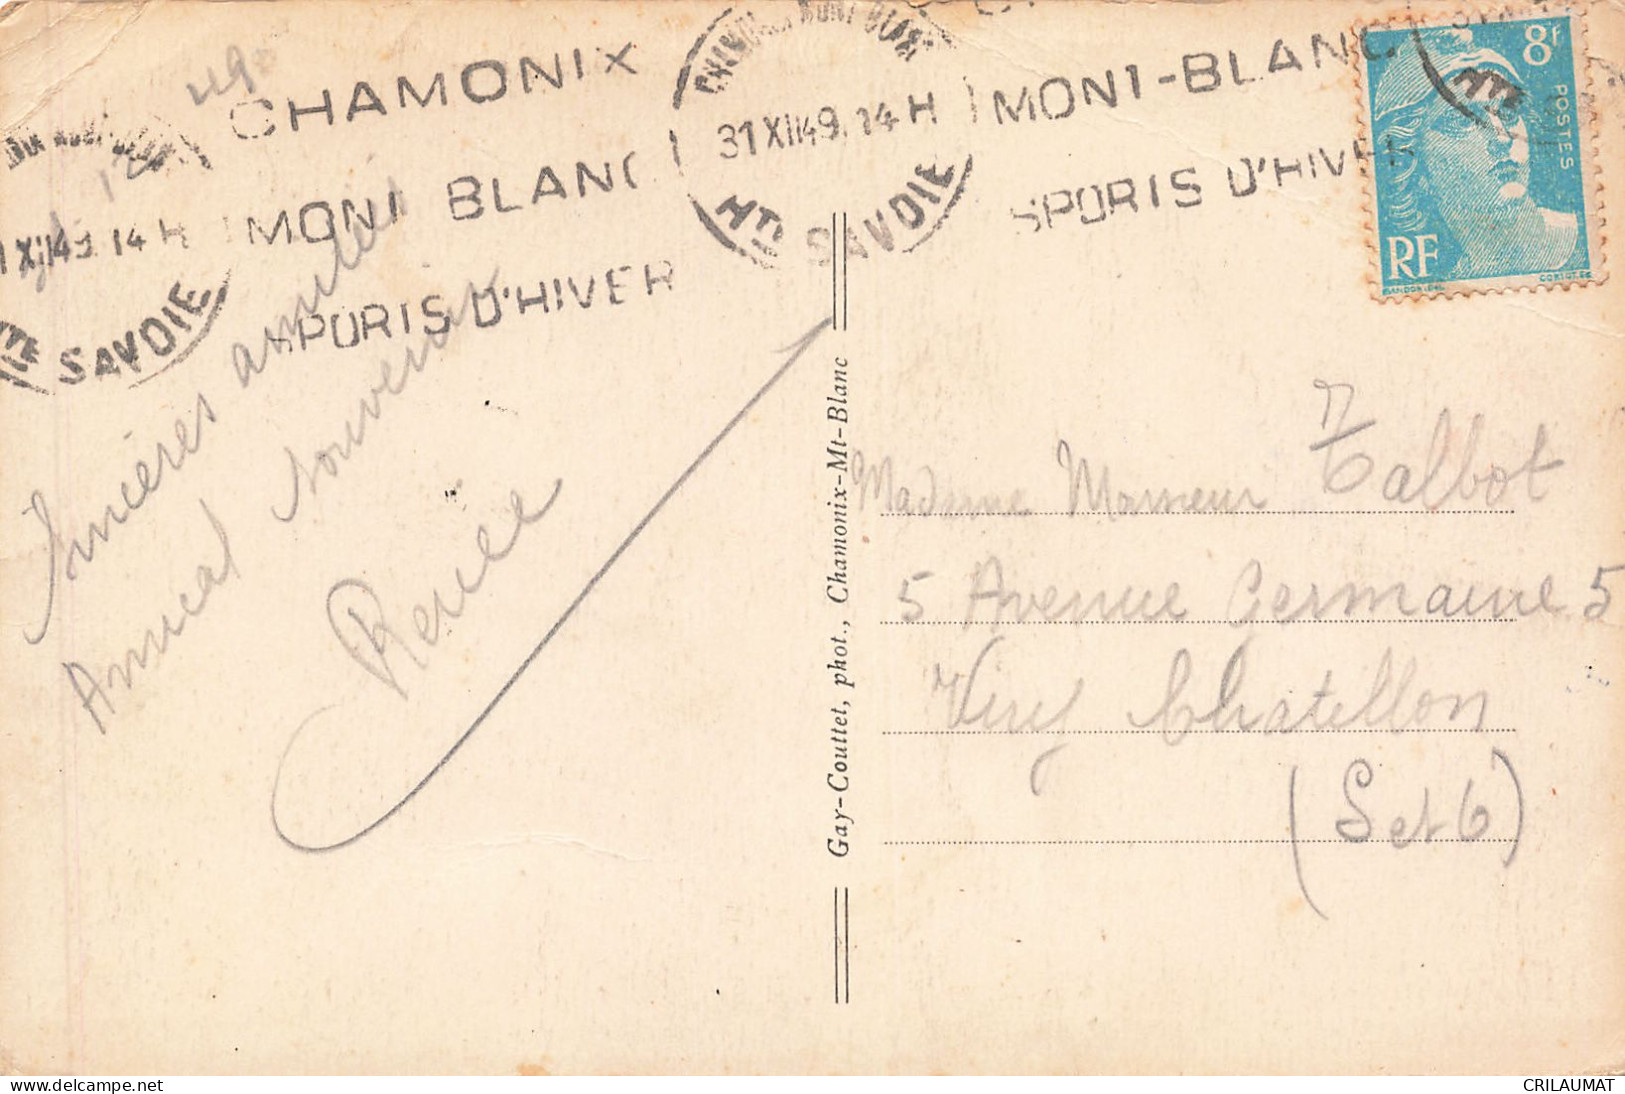 CHAMONIX
MONT BLANC
SPORTS D'HIVER
XII49. 14 H
SAVOIE
CHAMONIX MONT BLANC
31 XII49. 14 H
HTE SAVOIE
MONT-BLANC
SPORTS D'HIVER
8F
POSTES
RF
49
Sincères amitiés
Amical souvenir
Renée
Gay-Couttet, phot., Chamonix-Mt-Blanc
Madame Monsieur Talbot
5 Avenue Germaine 5
Viry Chatillon
(S et O)
CRILAUMAT